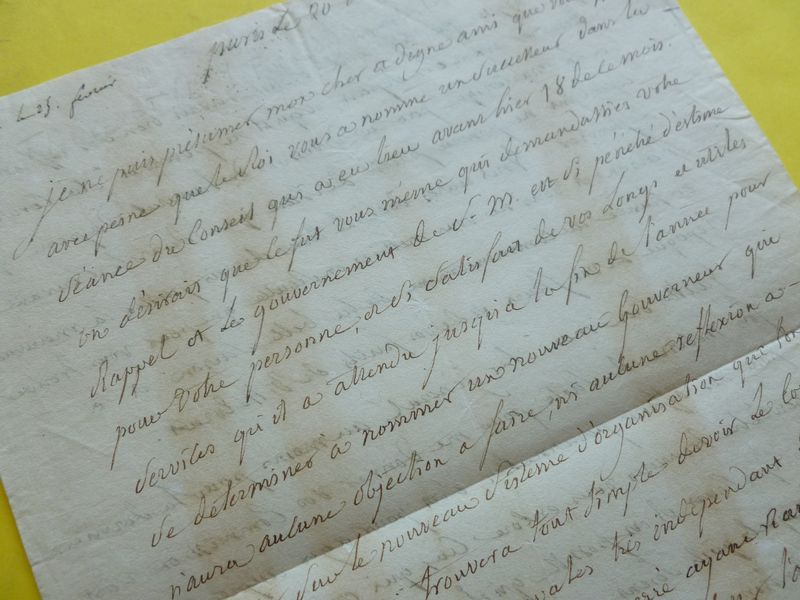 Paris Le 20
Le 25. fevrier
je ne puis présumer mon cher et digne ami que vous
avec peine que le Roi vous a nommé un successeur dans la
séance du Conseil qui a eu lieu avant hier 18 de ce mois.
on désirait que ce fut vous même qui demandassiés votre
Rappel et le gouvernement de S. M. est si pénétré d'estime
pour votre personne, et si satisfait de vos longs et utiles
services qu'il a attendu jusqu'à la fin de l'année pour
se determiner a nommer un nouveau Gouverneur qui
n'aura aucune objection a faire, ni aucune reflexion a
sur le nouveau sistême d'organisation que l'on
trouvera tout simple devoir Le
très independant
ayant